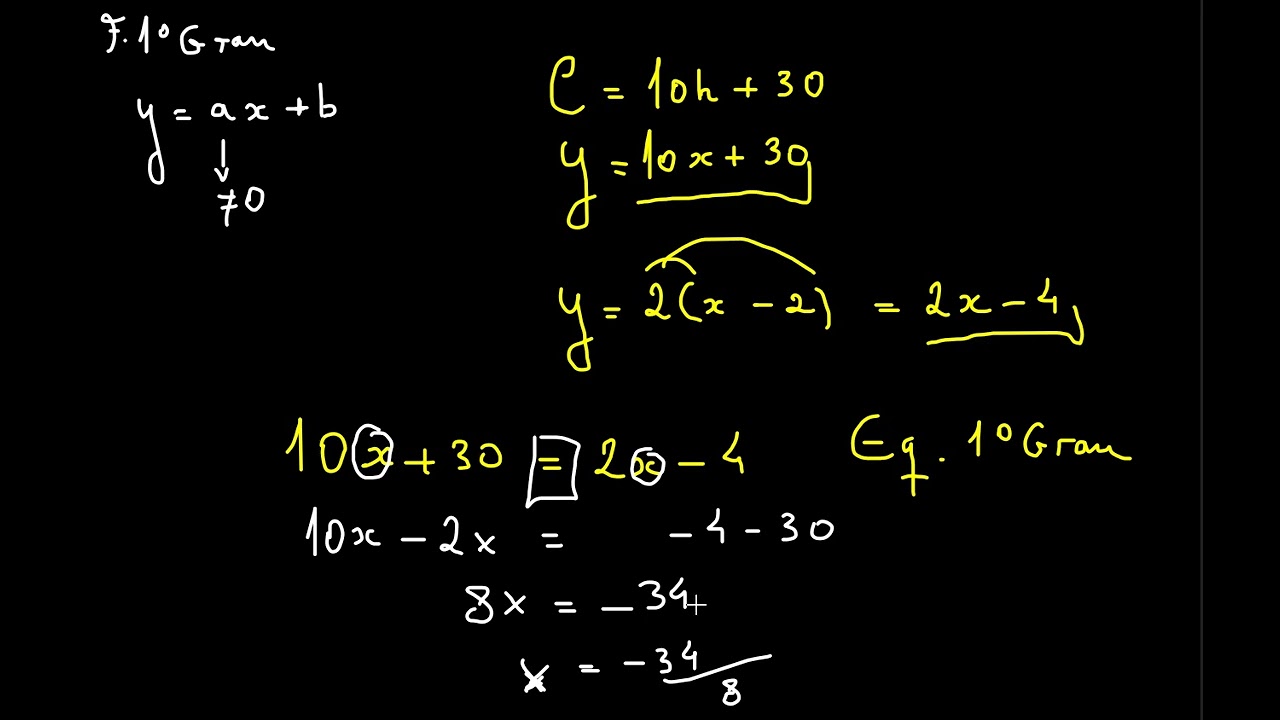 F. 1º Grau
y = ax + b
↓
≠0
C = 10h + 30
y = 10x + 30
y = 2(x - 2) = 2x - 4
10x + 30 = 2x - 4
Eq. 1º Grau
10x - 2x = -4 - 30
8x = -34
x = -34/8